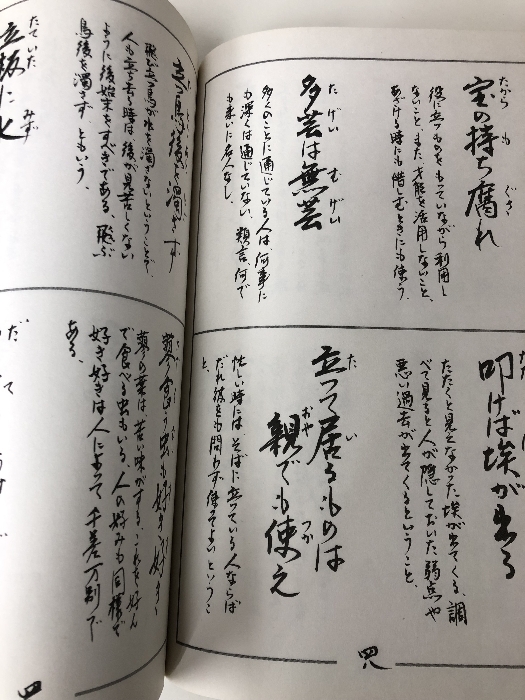 たから も ぐさ
宝の持ち腐れ
役に立つものをもっていながら利用し
ないこと、また、才能を活用しないこと、
あざける時にも惜しむときにも使う。
たげい むげい
多芸は無芸
多くのことに通じている人は、何事に
も深くは通じていない。類言、何で
も来いに名人なし。
叩けば埃が出る
たたくと見えなかった埃が出てくる、調
べて見ると人が隠しておいた弱点や
悪い過去が出てくるということ。
た い
立って居るものは
おや つか
親でも使え
忙しい時には、そばに立っている人ならば
だれ彼をも問わず使ってよいというこ
と。
四八
立つ鳥後を濁さず
飛び立つ鳥が水を濁さないということで、
人も立ち去る時は後が見苦しくない
ように後始末をすべきである。飛ぶ
鳥後を濁さず、ともいう。
蓼食う虫も好き好き
蓼の葉は、苦い味がする、これを好ん
で食べる虫もいる、人の好みも同様で
好き好きは人によって千差万別で
ある。
たていた みず
立板に水
四